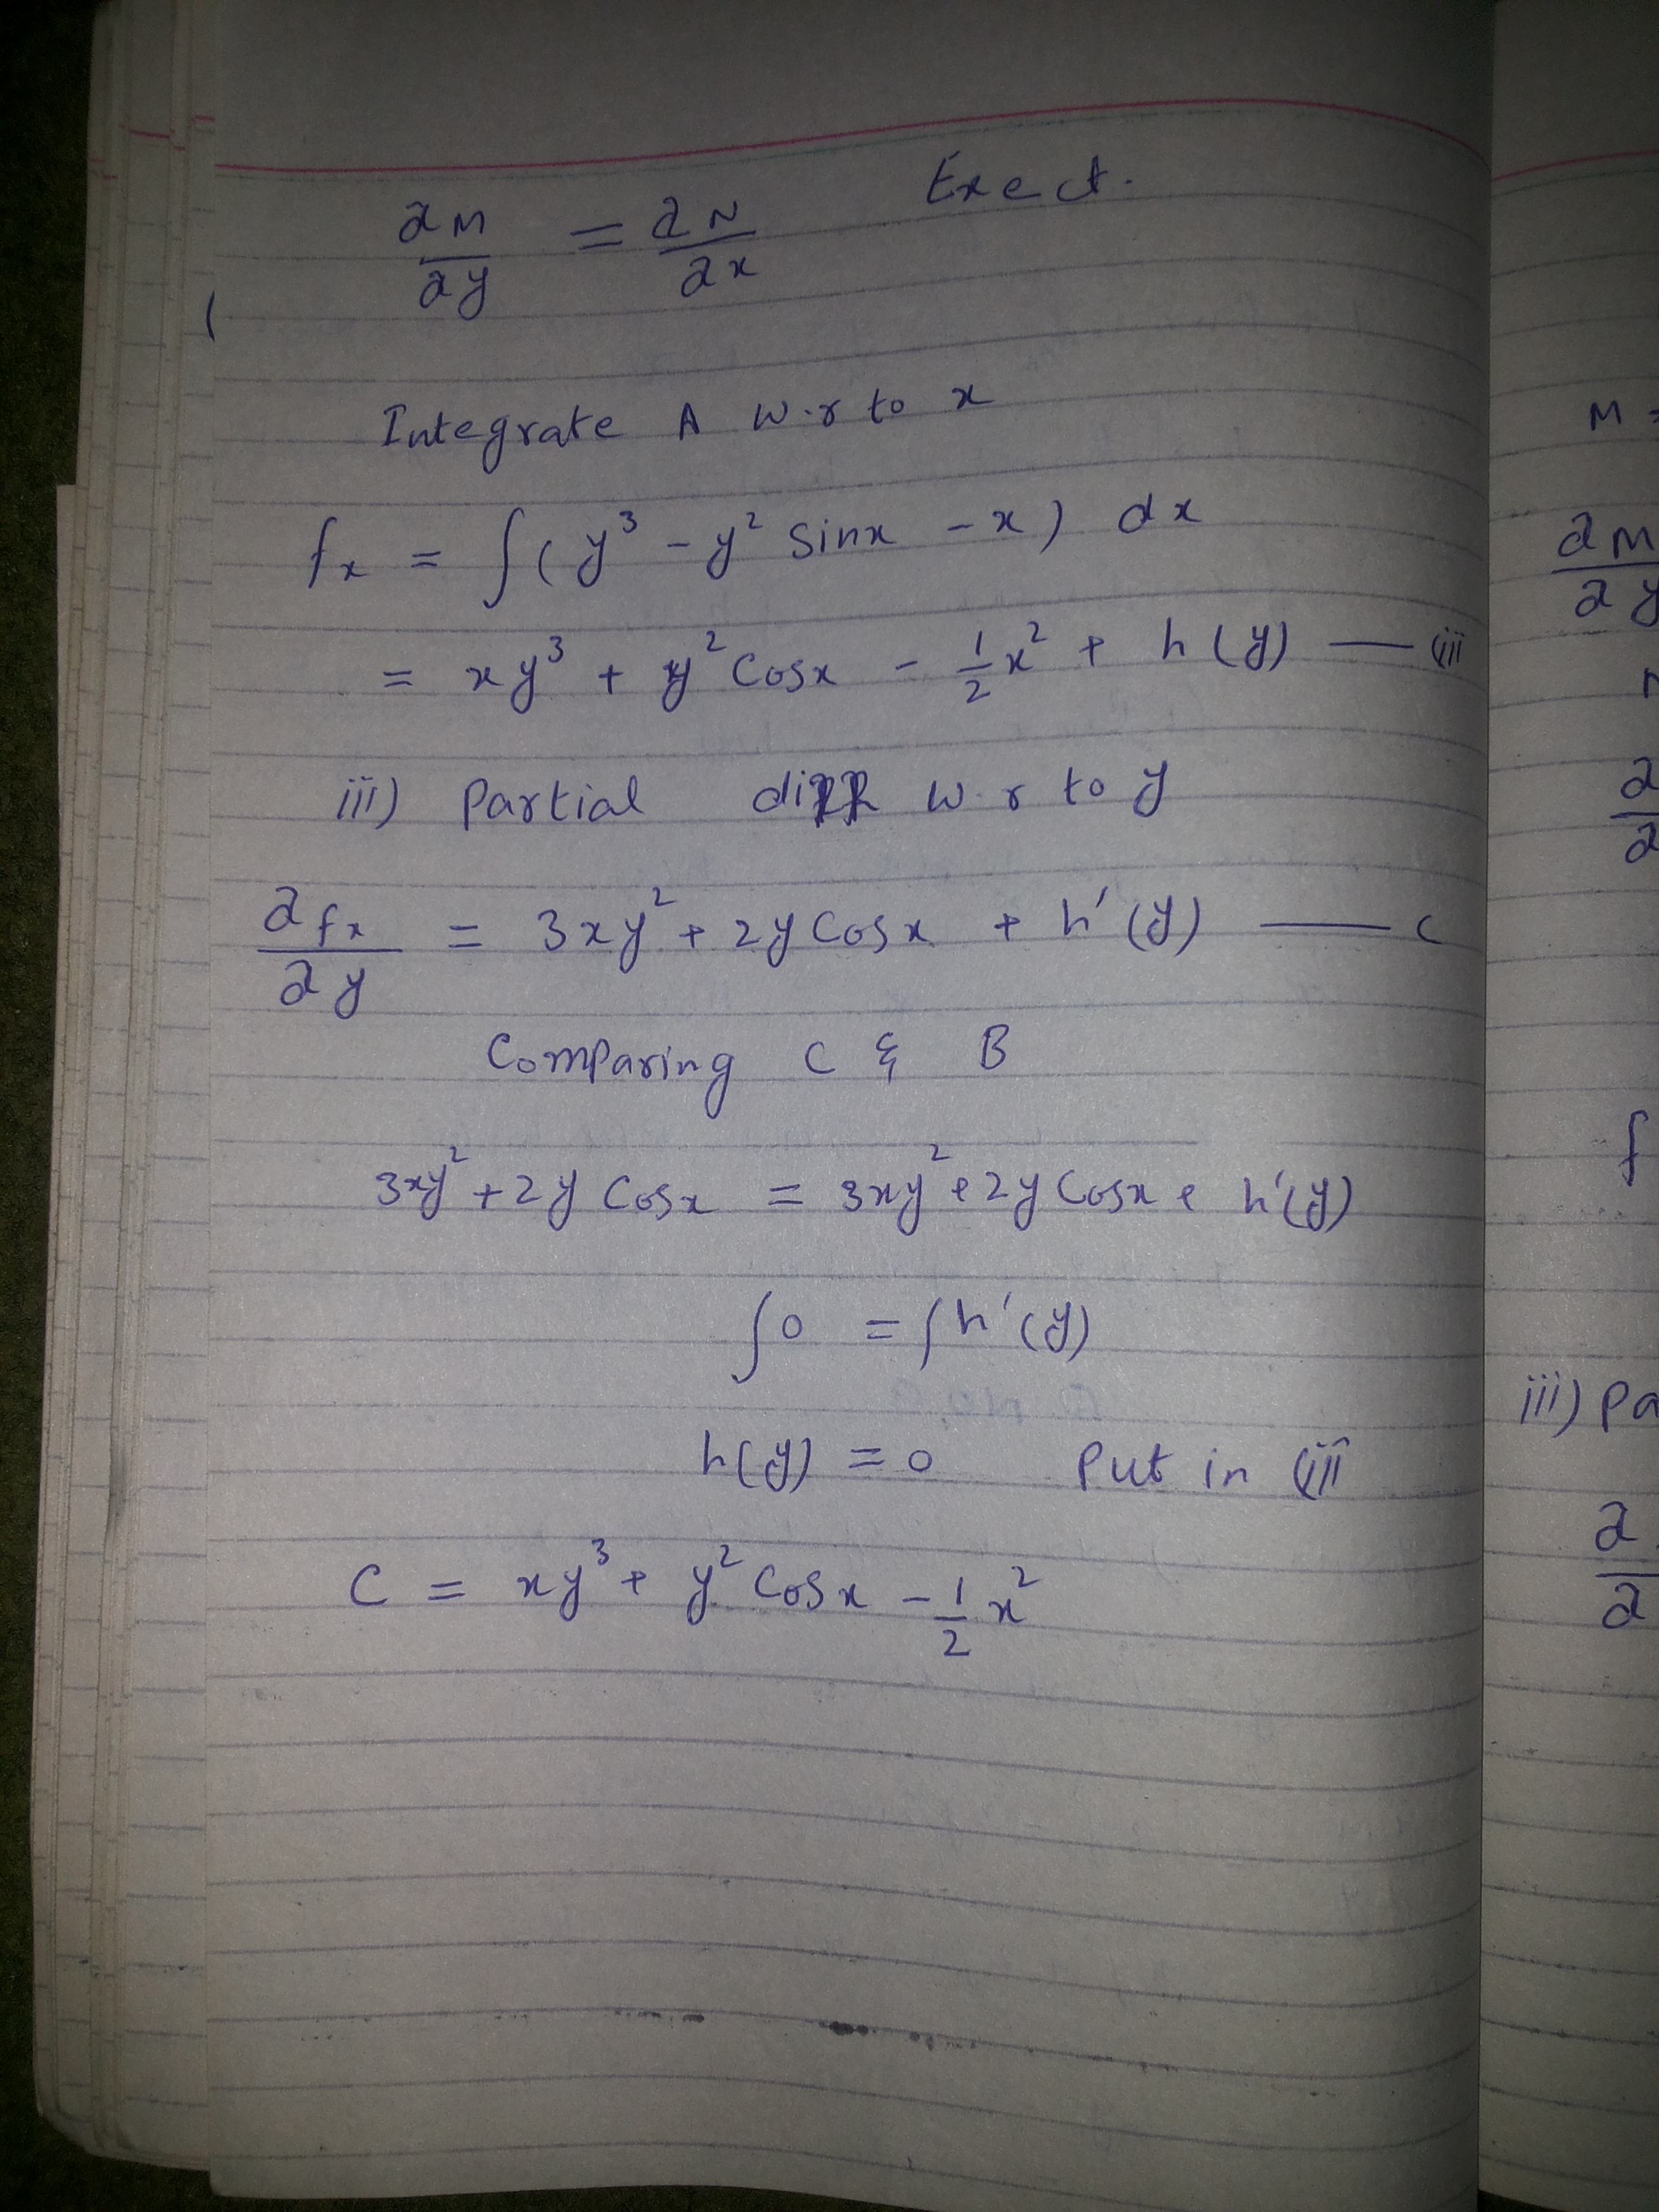 ∂M/∂y = ∂N/∂x Exect.
Integrate A w.r to x
fx = ∫(y³ - y² Sinx - x) dx
= xy³ + y² Cosx - 1/2 x² + h(y) — (iii
iii) Partial diff w.r to y
∂fx/∂y = 3xy² + 2y Cosx + h'(y) — C
Comparing C & B
3xy² + 2y Cosx = 3xy² + 2y Cosx + h'(y)
∫0 = ∫h'(y)
h(y) = 0 Put in (iii
C = xy³ + y² Cosx - 1/2 x²
M =
∂M/∂y
f
iii) Pa